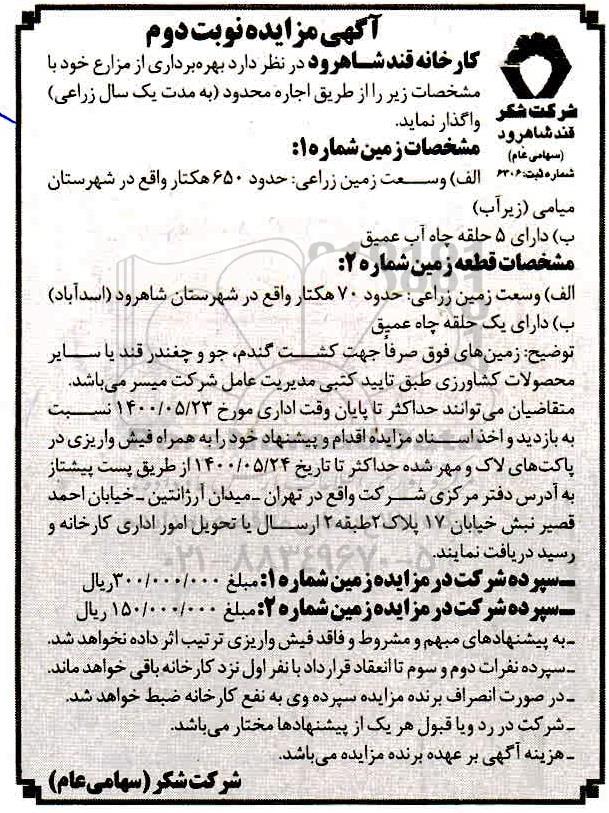 آگهی مزایده نوبت دوم
کارخانه قند شاهرود در نظر دارد بهره‌برداری از مزارع خود با
مشخصات زیر را از طریق اجاره محدود (به مدت یک سال زراعی)
واگذار نماید.
شرکت شکر
قند شاهرود
(سهامی عام)
شماره ثبت: ۶۳۰۶
مشخصات زمین شماره ۱:
الف) وسعت زمین زراعی: حدود ۶۵۰ هکتار واقع در شهرستان
میامی (زیرآب)
ب) دارای ۵ حلقه چاه آب عمیق
مشخصات قطعه زمین شماره ۲:
الف) وسعت زمین زراعی: حدود ۷۰ هکتار واقع در شهرستان شاهرود (اسدآباد)
ب) دارای یک حلقه چاه عمیق
توضیح: زمین‌های فوق صرفاً جهت کشت گندم، جو و چغندر قند یا سایر
محصولات کشاورزی طبق تایید کتبی مدیریت عامل شرکت میسر می‌باشد.
متقاضیان می‌توانند حداکثر تا پایان وقت اداری مورخ ۱۴۰۰/۰۵/۲۳ نسبت
به بازدید و اخذ اسناد مزایده اقدام و پیشنهاد خود را به همراه فیش واریزی در
پاکت‌های لاک و مهر شده حداکثر تا تاریخ ۱۴۰۰/۰۵/۲۴ از طریق پست پیشتاز
به آدرس دفتر مرکزی شرکت واقع در تهران ـ میدان آرژانتین ـ خیابان احمد
قصیر نبش خیابان ۱۷ پلاک ۲ طبقه ۲ ارسال یا تحویل امور اداری کارخانه و
رسید دریافت نمایند.
۰۲۱-۸۸۳۴۹۶۷۰-۵
ـ سپرده شرکت در مزایده زمین شماره ۱: مبلغ ۳۰۰/۰۰۰/۰۰۰ ریال
ـ سپرده شرکت در مزایده زمین شماره ۲: مبلغ ۱۵۰/۰۰۰/۰۰۰ ریال
ـ به پیشنهادهای مبهم و مشروط و فاقد فیش واریزی ترتیب اثر داده نخواهد شد.
ـ سپرده نفرات دوم و سوم تا انعقاد قرارداد با نفر اول نزد کارخانه باقی خواهد ماند.
ـ در صورت انصراف برنده مزایده سپرده وی به نفع کارخانه ضبط خواهد شد.
ـ شرکت در رد ویا قبول هر یک از پیشنهادها مختار می‌باشد.
ـ هزینه آگهی بر عهده برنده مزایده می‌باشد.
شرکت شکر (سهامی عام)